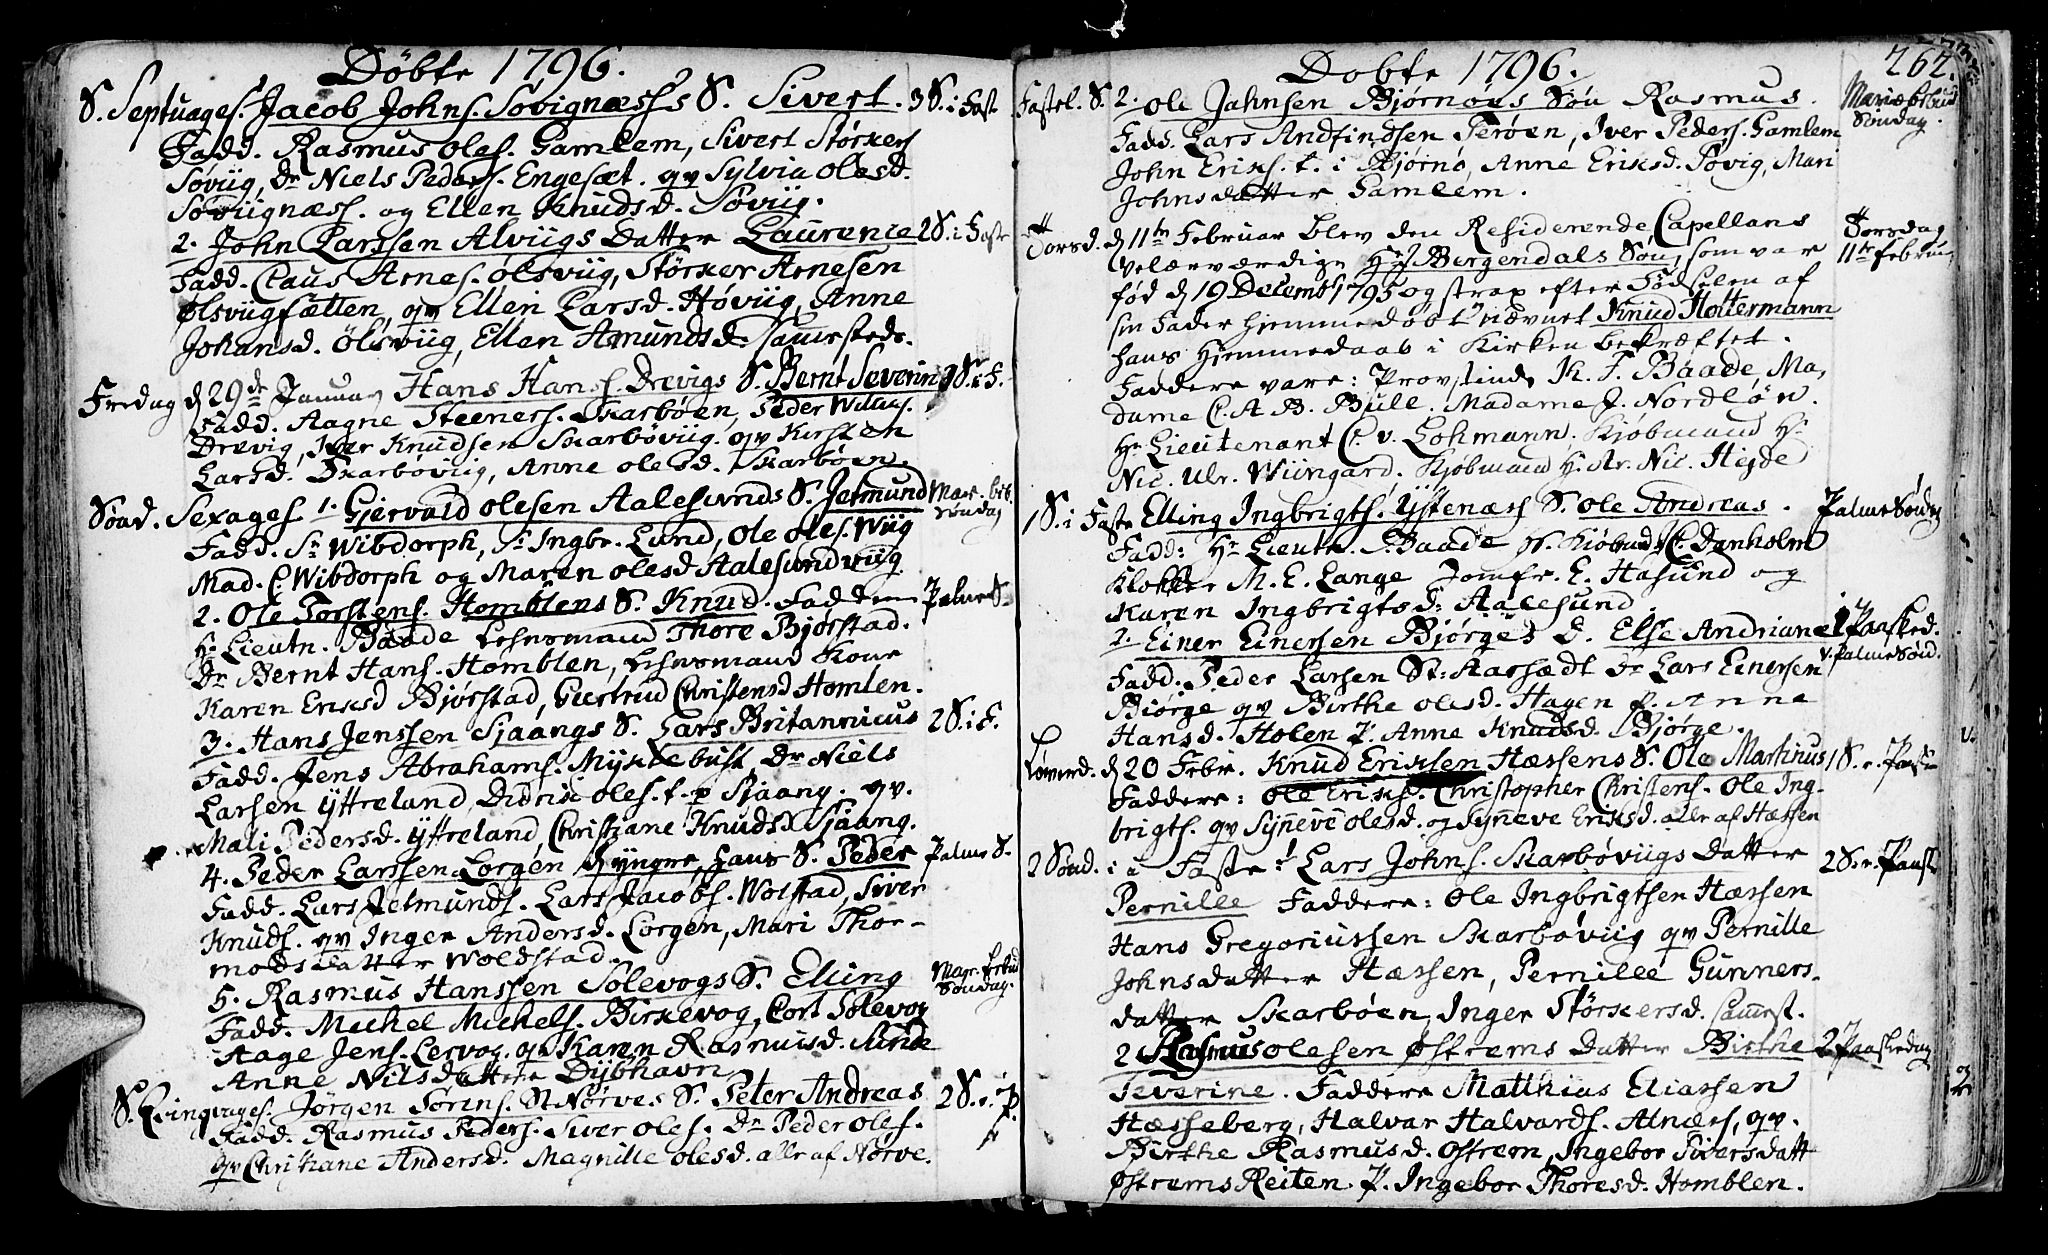 Döbte 1796.
S. Septuages. Jacob Johns. Sövignæsses S. Sivert. 3 S. i Fast
Fadd. Rasmus Oles. Gamlem, Sivert Störkers
Söviig, Dr Niels Peders. Engesæt. qv Sylvia Olesd.
Söviignæss. og Ellen Knudsd. Söviig.
2. John Larssen Alviigs Datter Laurence 2 S. i Faste
Fadd. Claus Arnes. Ölsviig, Störker Arnesen
Ölsviigsætten, qv Ellen Larsd. Höviig, Anne
Johansd. Ölsviig, Ellen Amundsd. sammesteds.
Fredag d 29de Januar Hans Hans. Drevigs S. Bernt Severin S. i F.
Fadd. Aagne Steeners. Skarböen, Peder Willas.
Drevig, Iver Knudsen Skarböviig. qv Kirsten
Larsd. Skarböviig, Anne Olesd. Skarböen.
Sönd. Sexages. 1. Gjervald Olesen Aalesunds S. Jetmund Mar. beb. Söndag
Fadd. Sr Wibdorph, Sr Ingbr. Lund, Ole Oles. Wiig
Mad. C Wibdorph og Maren Olesd Aalesundviig
2. Ole Torstens. Homblens S. Knud. Faddere Palme S.
Hr Lieutn. Baade Lehnsmand Thore Bjorstad.
Dr Bernt Hans. Homblen, Lehnsmand Kone
Karen Eriksd Bjorstad, Giertrud Christensd Homlen.
3. Hans Jenssen Sjaangs S. Lars Britannicus 2 S. i F.
Fadd. Jens Abrahams. Myklebust Dr Niels
Larsen Yttreland, Didrik Oles. t. p Sjaang. qv.
Mali Pedersd. Yttreland, Christiane Knudsd Sjaang.
4. Peder Larssen Lorgen d yngre, hans S. Peder Palme S.
Fadd. Lars Jetmunds. Lars Jacobs. Wolstad, Siver
Knuds. qv Inger Andersd. Lorgen, Mari Thor-
modsdatter Woldstad.
5. Rasmus Hanssen Solevogs S. Elling Mar. bebud Söndag.
Fadd. Michel Michels. Birkevog, Cort Solevog
Aage Jens. Lervog. qv Karen Rasmusd. Sunde
Anne Nilsdatter Dybhavn
S. Qvinqvages. Jörgen Sörens. N Nörves S. Peter Andreas 2 S. e. P.
Fadd. Rasmus Peders. Siver Oles. Dr Peder Oles.
qv Christiane Andersd. Magnille Olesd. alle af Nörve.
Döbte 1796. 262.
Fastel. S. 2. Ole Jahnsen Bjørnöes Sön Rasmus. Mariæ bebud Söndag.
Fadd. Lars Andfindsen Teröen, Iver Peders. Gamlem
John Eriks. t. i Bjørnö, Anne Eriksd. Søvig, Mari
Johnsdatter Gamlem.
Torsd. d 11te Februar blev den Residerende Capellans Torsdag
Velærværdige Hr Bergendals Sön, som var 11te februar
föd d 19 Decembr 1795 og strax efter Födselen af
sin Fader hjemmedöbt nævnet Knud Holtermann
hans Hjemmedaab i Kirken bekræftet.
Faddere vare: Provstinde K. F. Baade, Ma-
dame C. A B. Bull. Madame J. Nordlön.
Hr Lieutenant C. v. Lohmann. Kjöbmand Hr
Nic. Ulr. Wiingard, Kjöbmand H. Ar. Nic. Heyde
1 S. i Faste Elling Ingbrigts. Ystenæss S. Ole Andreas. Palme Söndag
Fadd: Hr Lieutn. Baade Kiöbmd C. Dønholm
Klokker M. E. Lange Jomfr. E. Hasund og
Karen Ingbrigtsd: Aalesund
2. Einer Einersen Bjørges D. Else Andriane 1 Paasked.
v. Palme Sönd.
Fadd. Peder Larsen St. Aarsædt Dr Lars Einersen
Biørge qv Birthe Olesd. Hagen P. Anne
Hansd. Holen P. Anne Knudsd. Bjørge.
Löverd. d 20 Febr. Knud Eriksen Hæssens S. Ole Martinus 1 S. e. Paaske
Faddere: Ole Eriks. Christopher Christens. Ole Ing-
brigts. qv Synneve Olesd. og Synneve Eriksd. alle af Hæssen
2 Sönd. i Faste 1 Lars Johns. Skarböviigs Datter 2 S. e. Paaske
Pernille Faddere: Ole Ingbrigtsen Hæssen
Hans Gregoriussen Skarböviig qv Pernille
Johnsdatter Hæssen, Pernille Gunners-
datter Skarböen, Inger Störkersd. sammest.
2 Rasmus Olesen Østrems Datter Birthe 2 Paaskedag
Severine. Faddere Matthias Eliassen
Hæsseberg, Halvar Halvards. Alnæs, qv.
Birthe Rasmusd. Østrem, Ingebor Siversdatt
Østrems Reiten P. Ingebor Thoresd. Homblen.